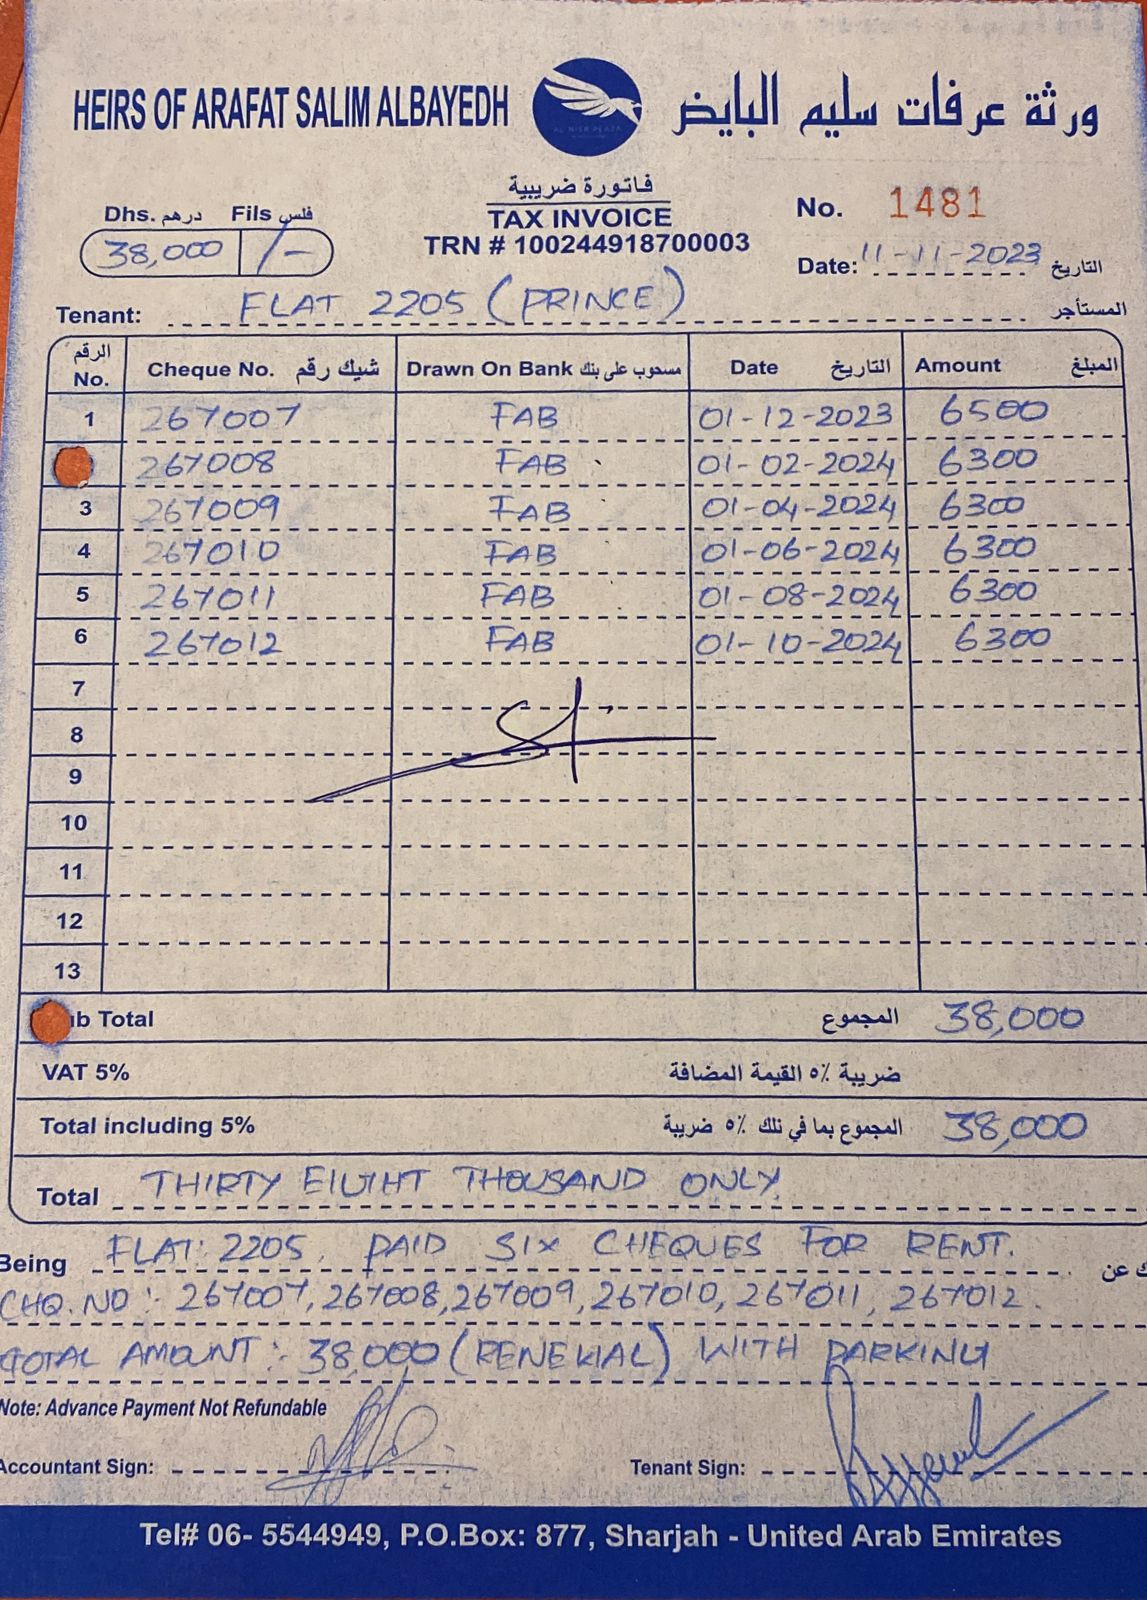 HEIRS OF ARAFAT SALIM ALBAYEDH ورثة عرفات سليم البايض
AL NISR PLAZA
فاتورة ضريبية
TAX INVOICE
TRN # 100244918700003
Dhs. درهم Fils فلس
38,000 /-
No. 1481
Date: 11-11-2023 التاريخ
Tenant: FLAT 2205 (PRINCE) المستأجر
الرقم No. Cheque No. شيك رقم Drawn On Bank مسحوب على بنك Date التاريخ Amount المبلغ
1 267007 FAB 01-12-2023 6500
267008 FAB 01-02-2024 6300
3 267009 FAB 01-04-2024 6300
4 267010 FAB 01-06-2024 6300
5 267011 FAB 01-08-2024 6300
6 267012 FAB 01-10-2024 6300
7
8
9
10
11
12
13
ub Total المجموع 38,000
VAT 5% ضريبة ٥٪ القيمة المضافة
Total including 5% المجموع بما في ذلك ٥٪ ضريبة 38,000
Total THIRTY EIGHT THOUSAND ONLY
Being FLAT: 2205. PAID SIX CHEQUES FOR RENT. ك عن
CHQ. NO :- 267007, 267008, 267009, 267010, 267011, 267012.
TOTAL AMOUNT :- 38,000 (RENEWAL) WITH PARKING
Note: Advance Payment Not Refundable
Accountant Sign: Tenant Sign:
Tel# 06- 5544949, P.O.Box: 877, Sharjah - United Arab Emirates